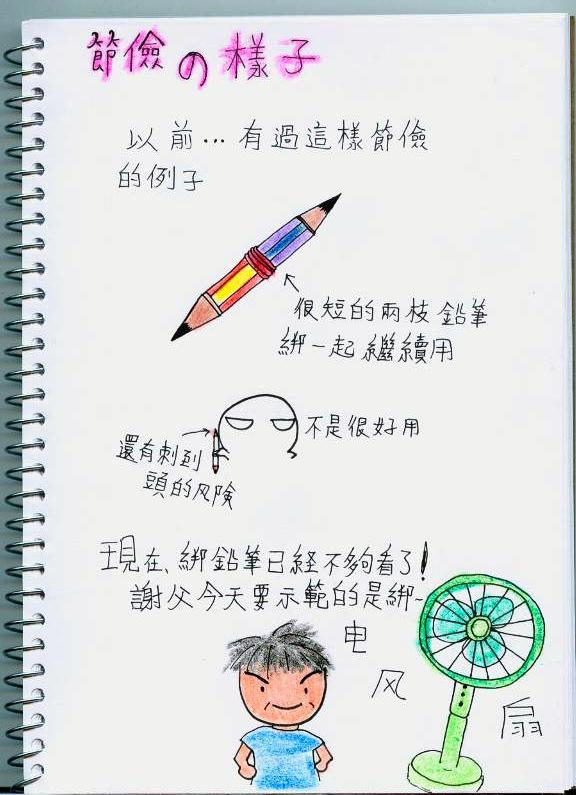 節儉の樣子
以前…有過這樣節儉
的例子
很短的兩枝鉛筆
綁一起繼續用
不是很好用
還有刺到
頭的风険
現在、綁鉛筆已経不夠看了!
謝父今天要示範的是綁-
电
风
扇